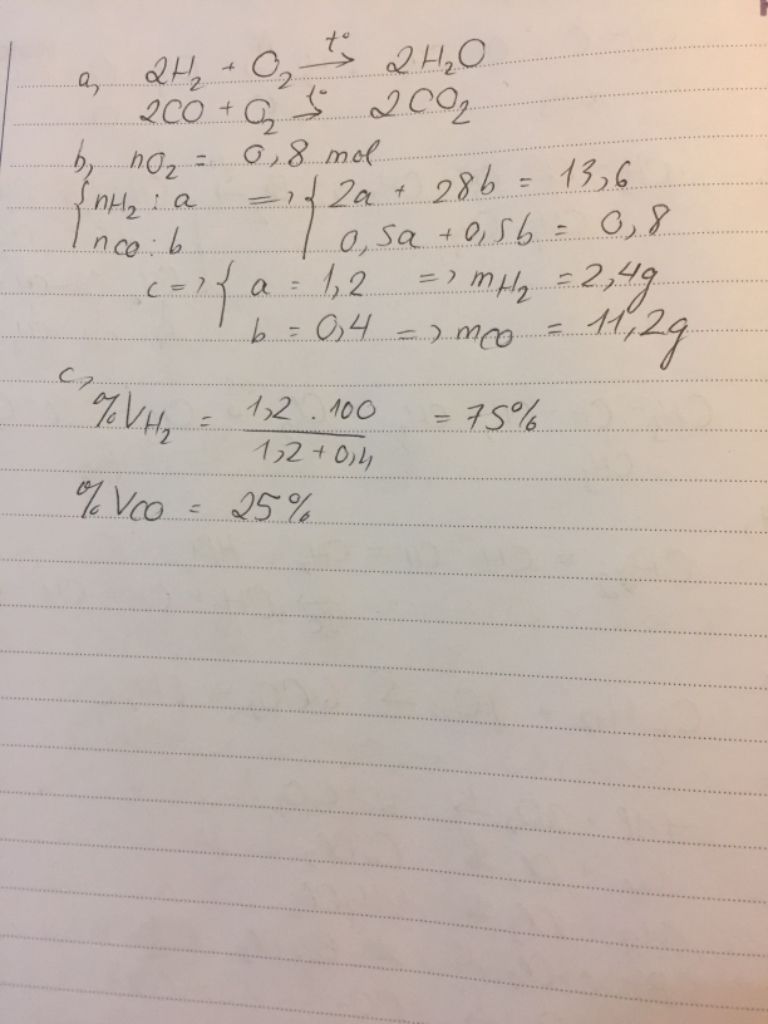 a, 2H₂ + O₂ —t°→ 2H₂O
2CO + O₂ —t°→ 2CO₂
b, nO₂ = 0,8 mol
{ nH₂ : a => { 2a + 28b = 13,6
nCO : b 0,5a + 0,5b = 0,8
c => { a = 1,2 => mH₂ = 2,4g
b = 0,4 => mCO = 11,2g
c,
%VH₂ = 1,2 . 100 / 1,2 + 0,4 = 75%
%VCO = 25%